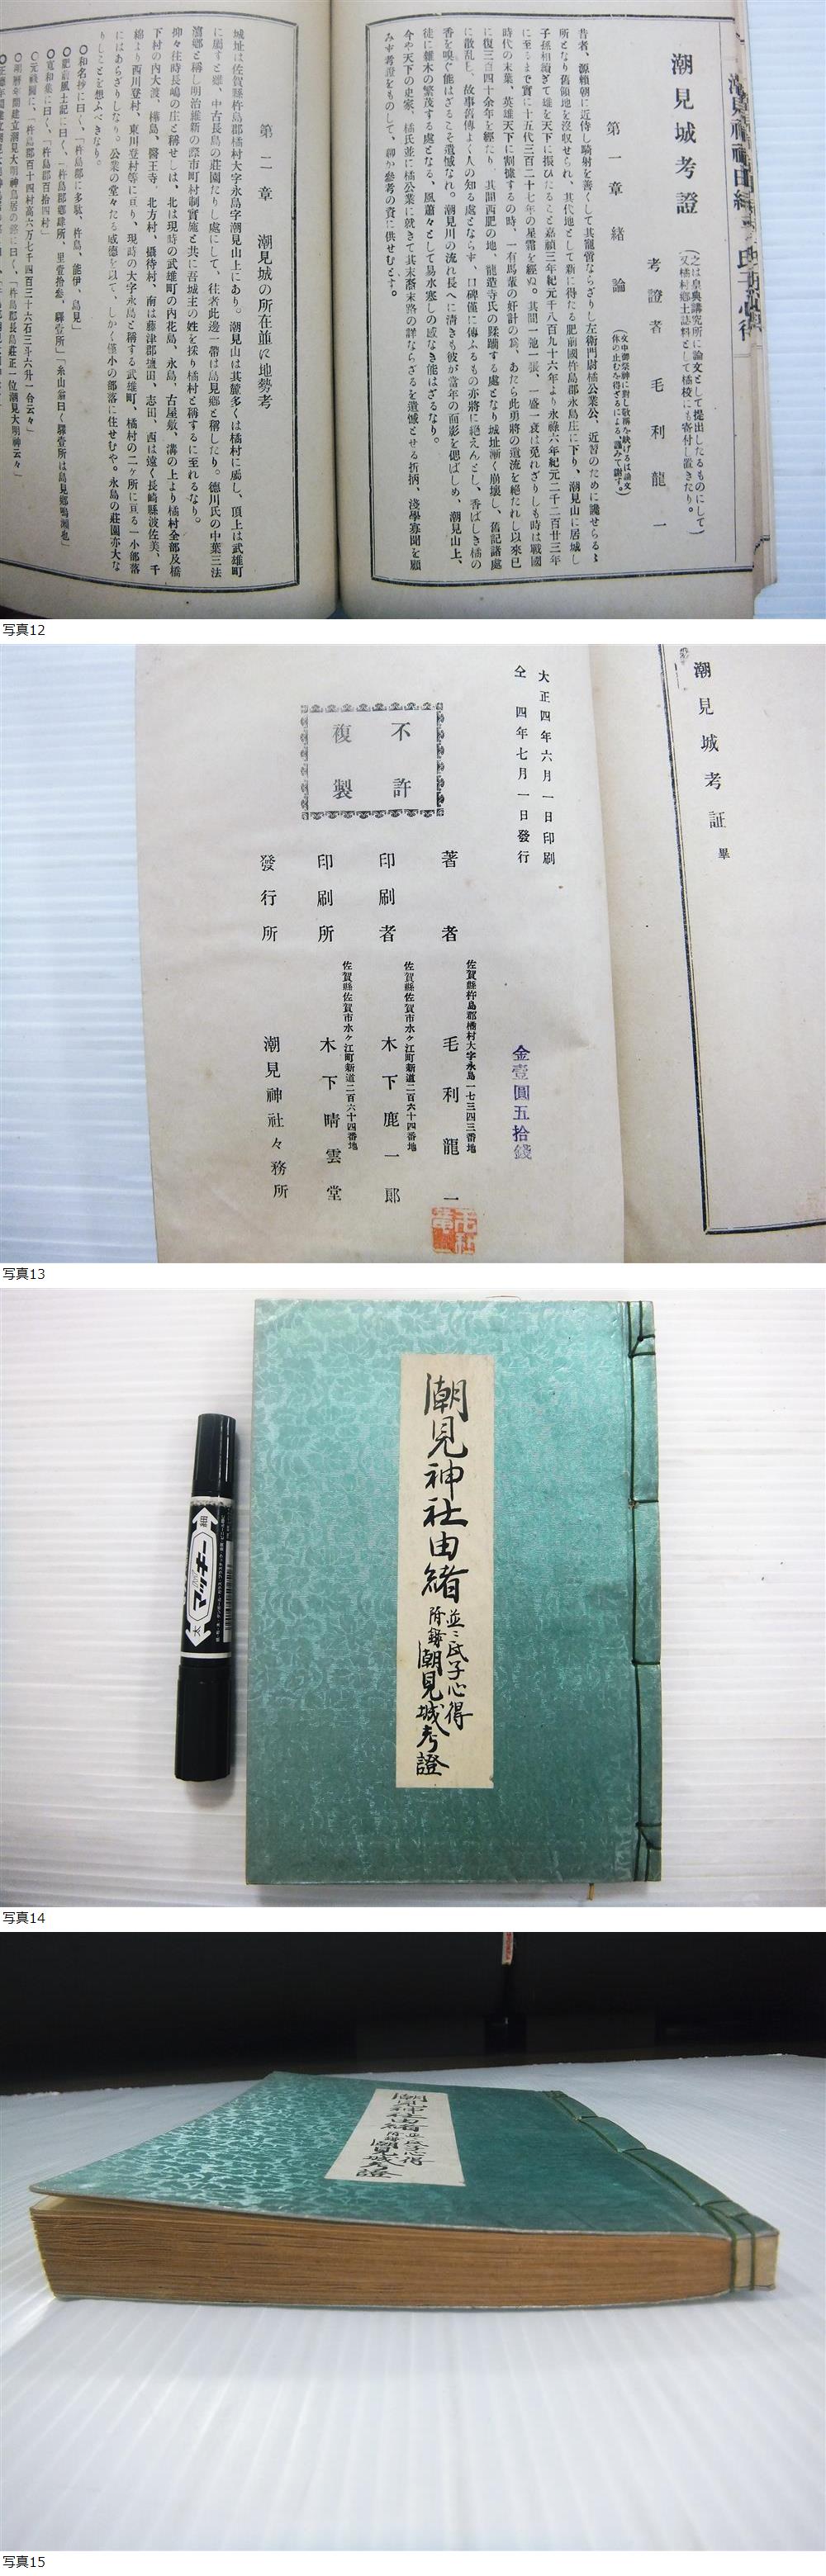 潮見城考證
(之は皇典講究所に論文として提出したるものにして
又橘村郷土誌料として橘校にも寄付し置きたり。)
考證者 毛利龍一
第一章 緒論
昔者、源賴朝に近侍し騎射を善くして其寵甞ならざりし左衛門尉橘公業公、近習のために讒せらるゝ
所となり舊領地を沒収せられ、其代地として新に得たる肥前國杵島郡永島庄に下り、潮見山に居城し
子孫相續ぎて雄を天下に振ひたること嘉禎三年紀元千八百九十六年より永祿六年紀元二千二百廿三年
に至るまで實に十五代三百二十七年の星霜を經ぬ。其間一弛一張、一盛一衰は免れざりしも時は戰國
時代の末葉、英雄天下に割據するの時、一有馬輩の奸計の爲、あたら此勇將の遺流を絶たれし以來已
に復三百四十余年を經たり。其間西肥の地、龍造寺氏の蹂躙する處となり城址漸く崩壊し、舊記諸處
に散乱し、故事舊傳よく人の知る處とならず、口碑僅に傳ふるもの亦將に絶えんとし、香ばしき橘の
香を嗅ぐ能はざるこそ遺憾なれ。潮見川の流れ長へに清きも彼が當年の面影を偲ばしめ、潮見山上、
徒に雜木の繁茂する處となる、風蕭々として易水寒しの感なき能はざるなり。
今や天下の史家、橘氏並に橘公業に就きて其末裔末路の詳ならざるを遺憾とせる折柄、淺學寡聞を顧
みず考證をものして、聊か參考の資に供せむとす。
第二章 潮見城の所在並に地勢考
城址は佐賀縣杵島郡橘村大字永島字潮見山上にあり。潮見山は其麓多くは橘村に屬し、頂上は武雄町
に屬すと雖、中古長島の莊園たりし處にして、往者此邊一帶は島見郷と稱したり。德川氏の中葉三法
瀉郷と稱し明治維新の際市町村制實施と共に吾城主の姓を採り橘村と稱するに至れるなり。
抑々往時長嶋の庄と稱せしは、北は現時の武雄町の内花島、永島、古屋敷、溝の上より橘村全部及橋
下村の内大渡、樺島、醫王寺。北方村、攝待村、南は藤津郡鹽田、志田、西は遠く長崎縣波佐美、千
綿より西川登村、東川登村等に亘り、現時の大字永島と稱する武雄町、橘村の二ヶ所に亘る一小部落
にはあらざりしなり。公業の堂々たる威德を以て、しかく僅小の部落に住せむや。永島の莊園亦大な
りしことを想ふべきなり。
〇和名抄に曰く、「杵島郡に多駄、杵島、能伊、島見」
〇肥前風土記に曰く、「杵島郡郷肆所、里壹拾參、驛壹所」「糸山翁曰く驛壹所は島見郷鳴瀨也」
〇寬和集に曰く、「杵島郡百拾四村」
〇元祿圖に、「杵島郡百十四村高六万七千四百三十六石三斗六升一合云々」
写真12
潮見城考証 畢
大正四年六月一日印刷
仝 四年七月一日發行
不許
複製
金壹圓五拾錢
佐賀縣杵島郡橘村大字永島一七三四三番地
著者 毛利龍一
佐賀縣佐賀市水ヶ江町新道二百六十四番地
印刷者 木下鹿一郎
佐賀縣佐賀市水ヶ江町新道二百六十四番地
印刷所 木下晴雲堂
發行所 潮見神社々務所
写真13
潮見神社由緒
並ニ氏子心得
附錄潮見城考證
マッキー
太
写真14
潮見神社由緒
並ニ氏子心得
附錄潮見城考證
写真15